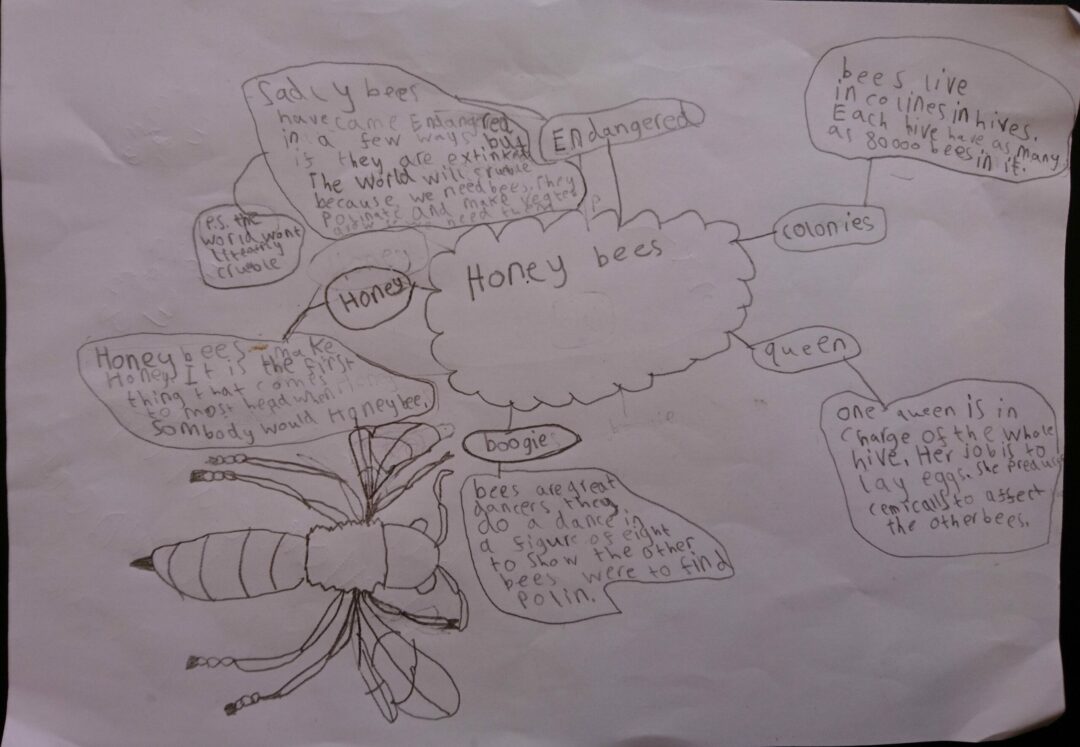 Honey bees
Endangered
Sadly bees
have came Endangered
in a few ways but
if they are extinked
The world will cruble
because we need bees. They
polinate and make vegtes
grow we need them
P.S. the
world wont
literarly
crueble
colonies
bees live
in colines in hives.
Each hive have as many
as 80000 bees in it.
queen
one queen is in
charge of the whole
hive. Her job is to
lay eggs. She preduses
cemicalls to affect
the other bees.
Honey
Honey bees make
Honey. It is the first
thing that comes
to most head when
sombody would Honey bee.
boogie
bees are great
dancers, they
do a dance in
a figure of eight
to show the other
bees were to find
Polin.